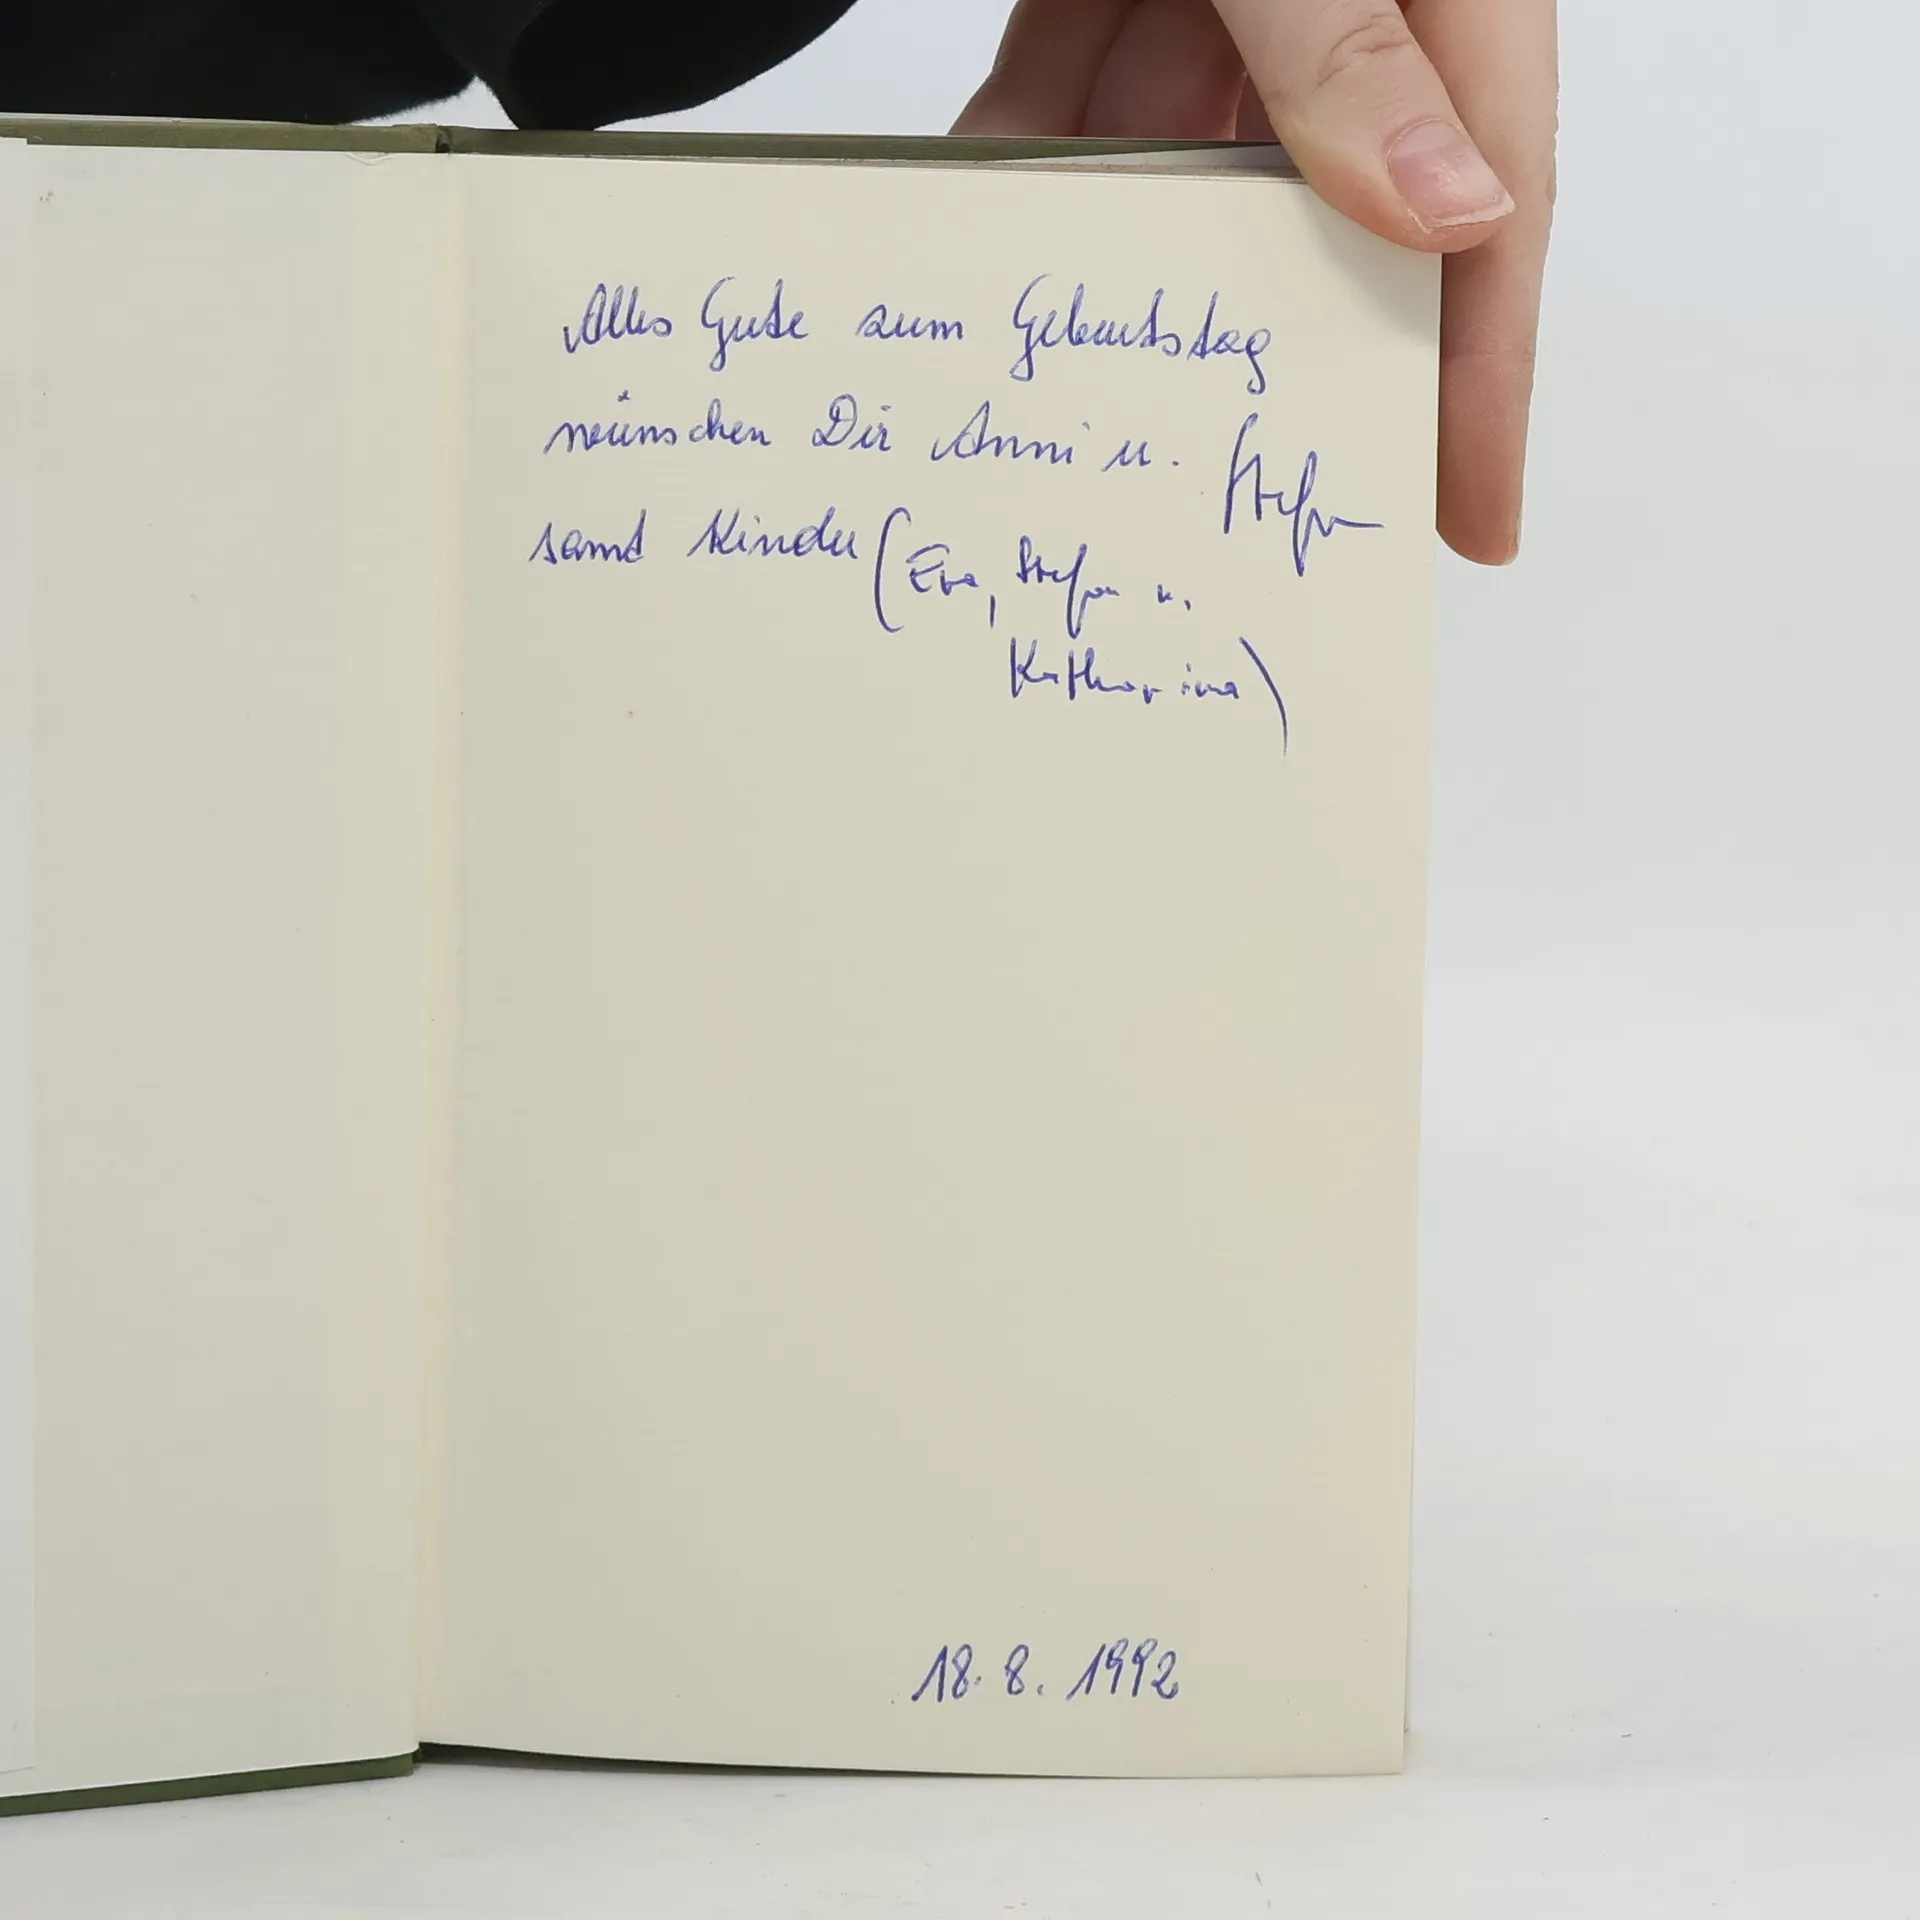 Alles Gute zum Geburtstag
wünschen Dir Anni u. Stefan
samt Kinder (Eva, Stefan u.
Katharina)
18. 8. 1992